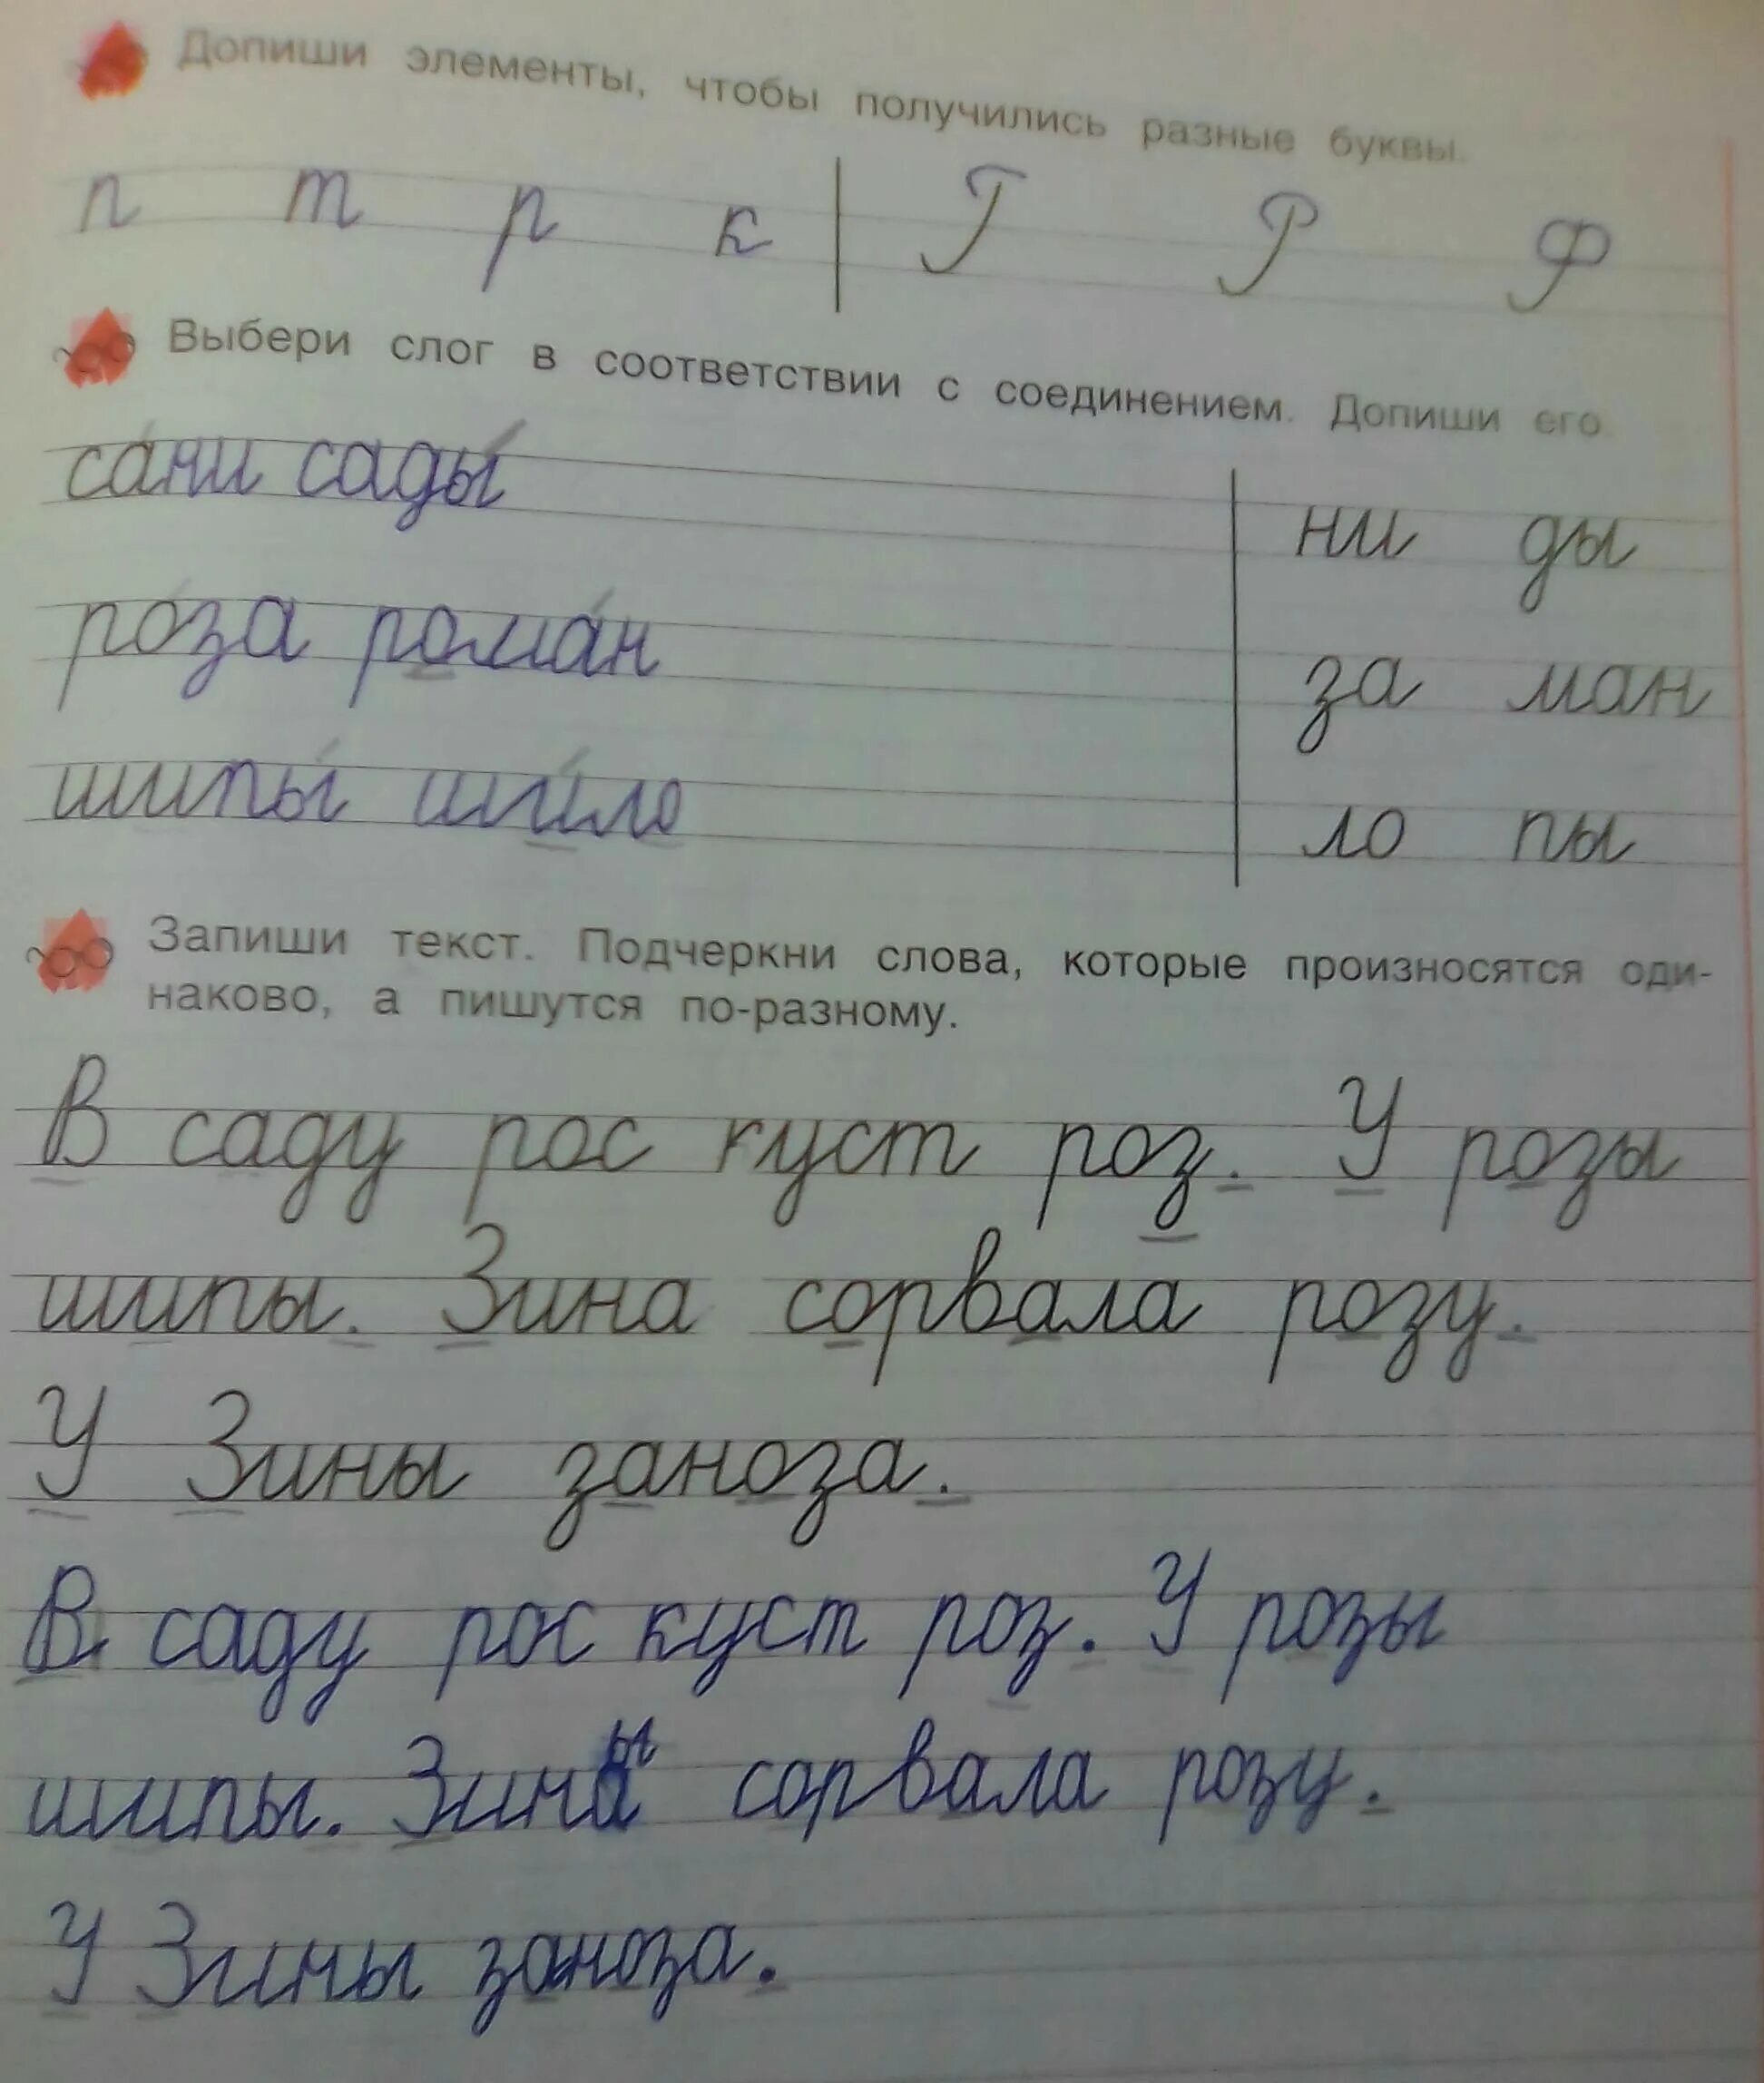 Допиши элементы, чтобы получились разные буквы.
п т р к Г Р Ф
Выбери слог в соответствии с соединением. Допиши его.
са́ни сады́ ни ды
ро́за рома́н за ман
шипы́ ши́ло ло пы
Запиши текст. Подчеркни слова, которые произносятся оди-
наково, а пишутся по-разному.
В саду рос куст роз. У розы
шипы. Зина сорвала розу.
У Зины заноза.
В саду рос куст роз. У розы
шипы. Зина ы сорвала розу.
У Зины заноза.